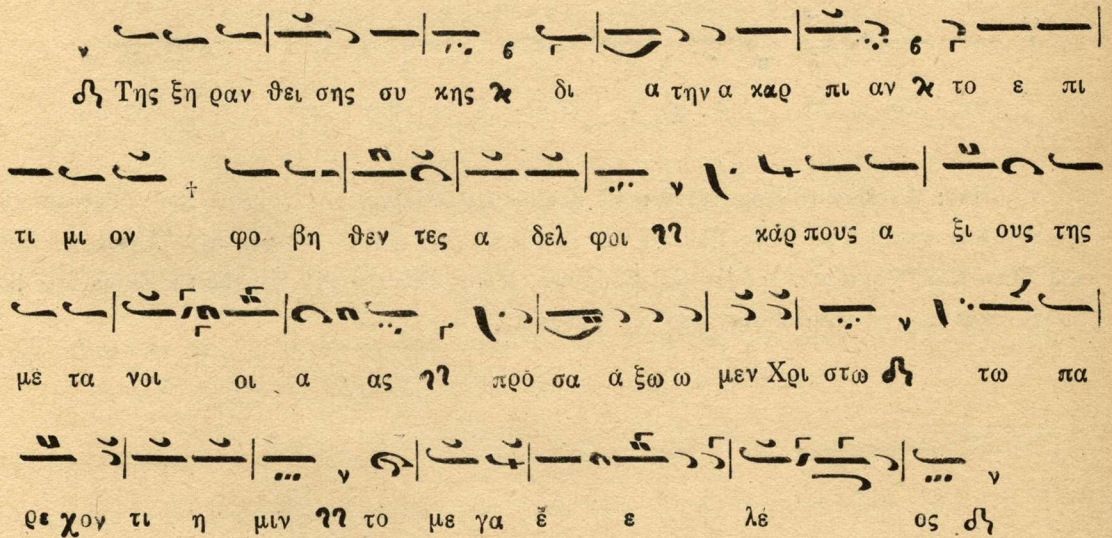 Της ξη ραν θει σης συ κης δι α την α καρ πι αν το ε πι
τι μι ον φο βη θεν τες α δελ φοι κάρ πους α ξι ους της
με τα νοι οι α ας προ σα ά ξω ω μεν Χρι στω τω πα
ρε χον τι η μιν το με γα ε ε λέ ος